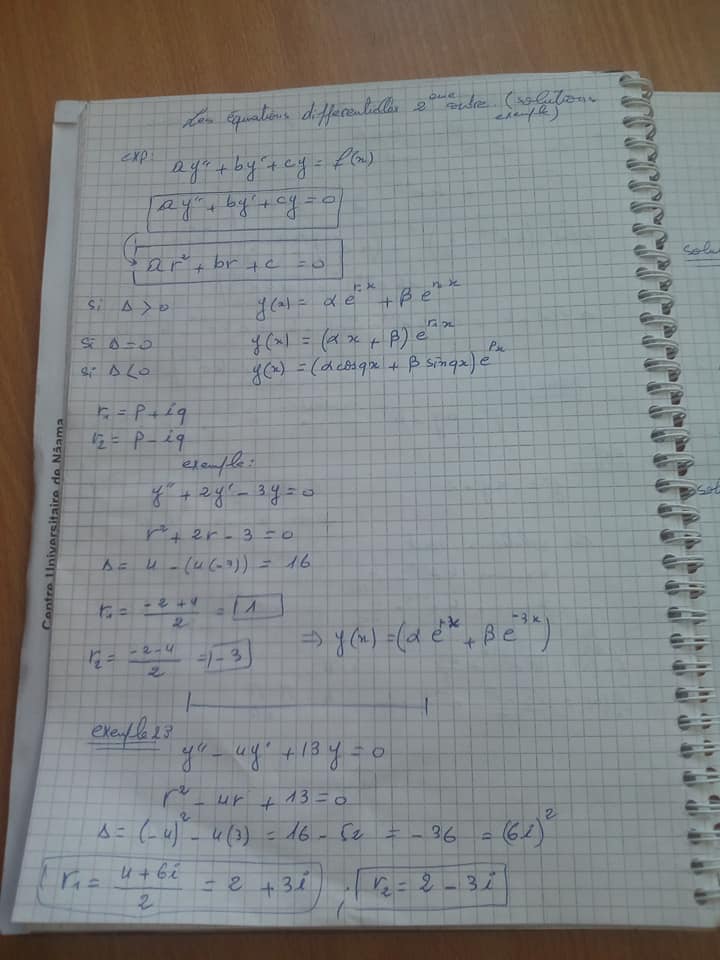 Les équations differentielles 2 ème ordre (solutions
exemple)
exp: ay'' + by' + cy = f(x)
ay'' + by' + cy = 0
ar² + br + c = 0
si Δ > 0 y(x) = α e^{r₁x} + β e^{r₂x}
si Δ = 0 y(x) = (αx + β) e^{r₁x}
si Δ < 0 y(x) = (α cosqx + β sinqx) e^{px}
r₁ = p + iq
r₂ = p - iq
exemple:
y'' + 2y' - 3y = 0
r² + 2r - 3 = 0
Δ = 4 - (4(-3)) = 16
r₁ = (-2+4)/2 = 1
r₂ = (-2-4)/2 = -3 ⇒ y(x) = (α e^{x} + β e^{-3x})
exemple 23
y'' - 4y' + 13y = 0
r² - 4r + 13 = 0
Δ = (-4)² - 4(3) = 16 - 52 = -36 = (6i)²
r₁ = (4+6i)/2 = 2 + 3i ; r₂ = 2 - 3i
Centre Universitaire de Nâama
solu
sol